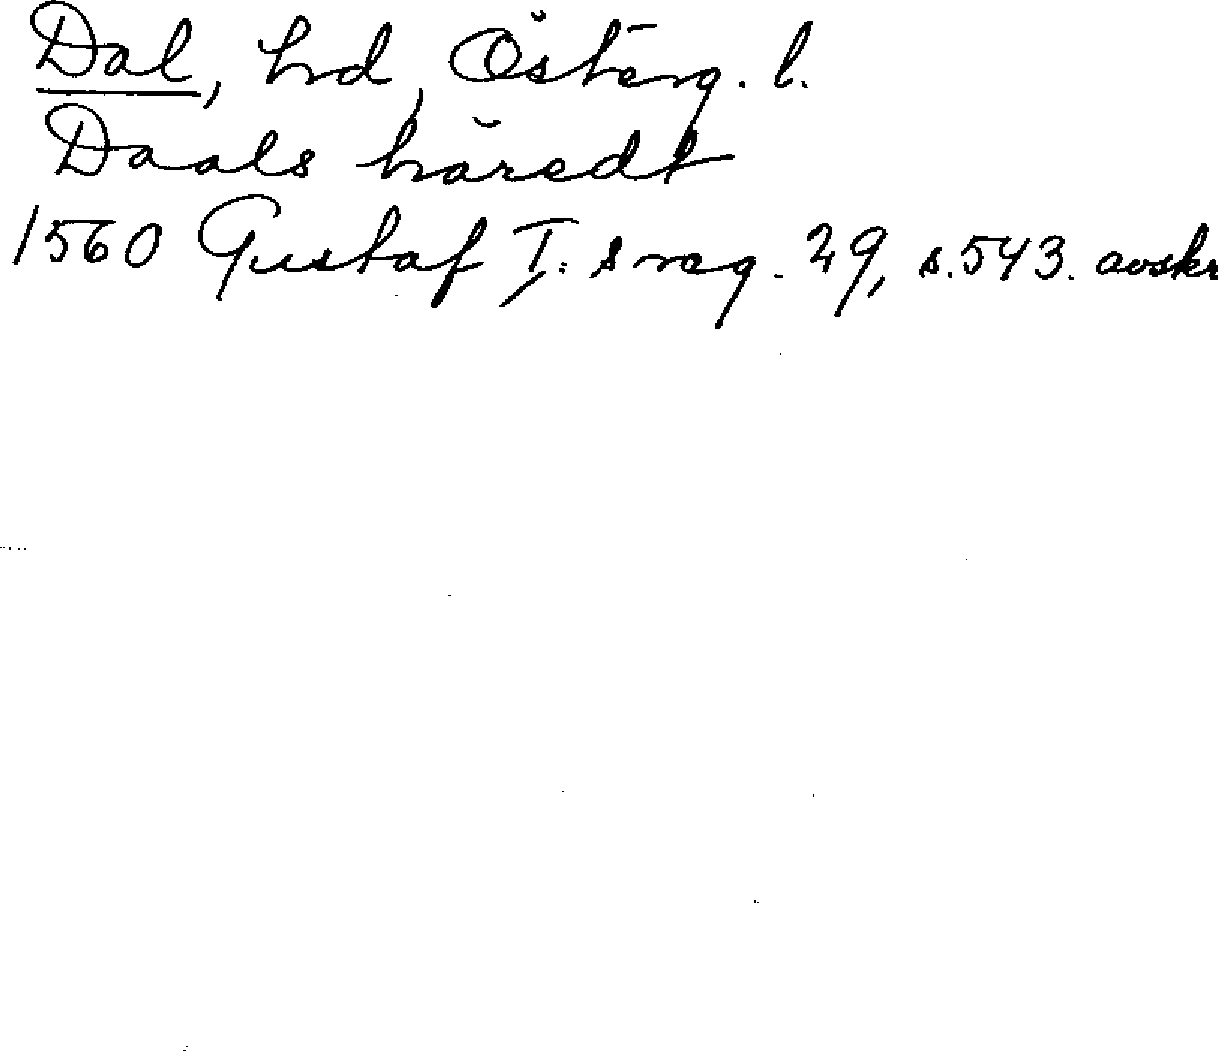 Dal, hd, Österg. l.
Daals häredt
1560 Gustaf I:s reg. 29, s. 543. avskr